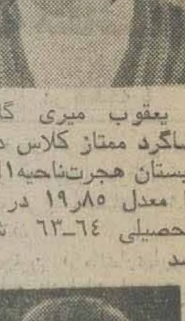 یعقوب میری گا
ساگرد ممتاز کلاس د
یستان هجرت‌ناحیه۱۱
معدل ۱۹٫۸۵ در
حصیلی ۶۴ـ۶۳ ش
د